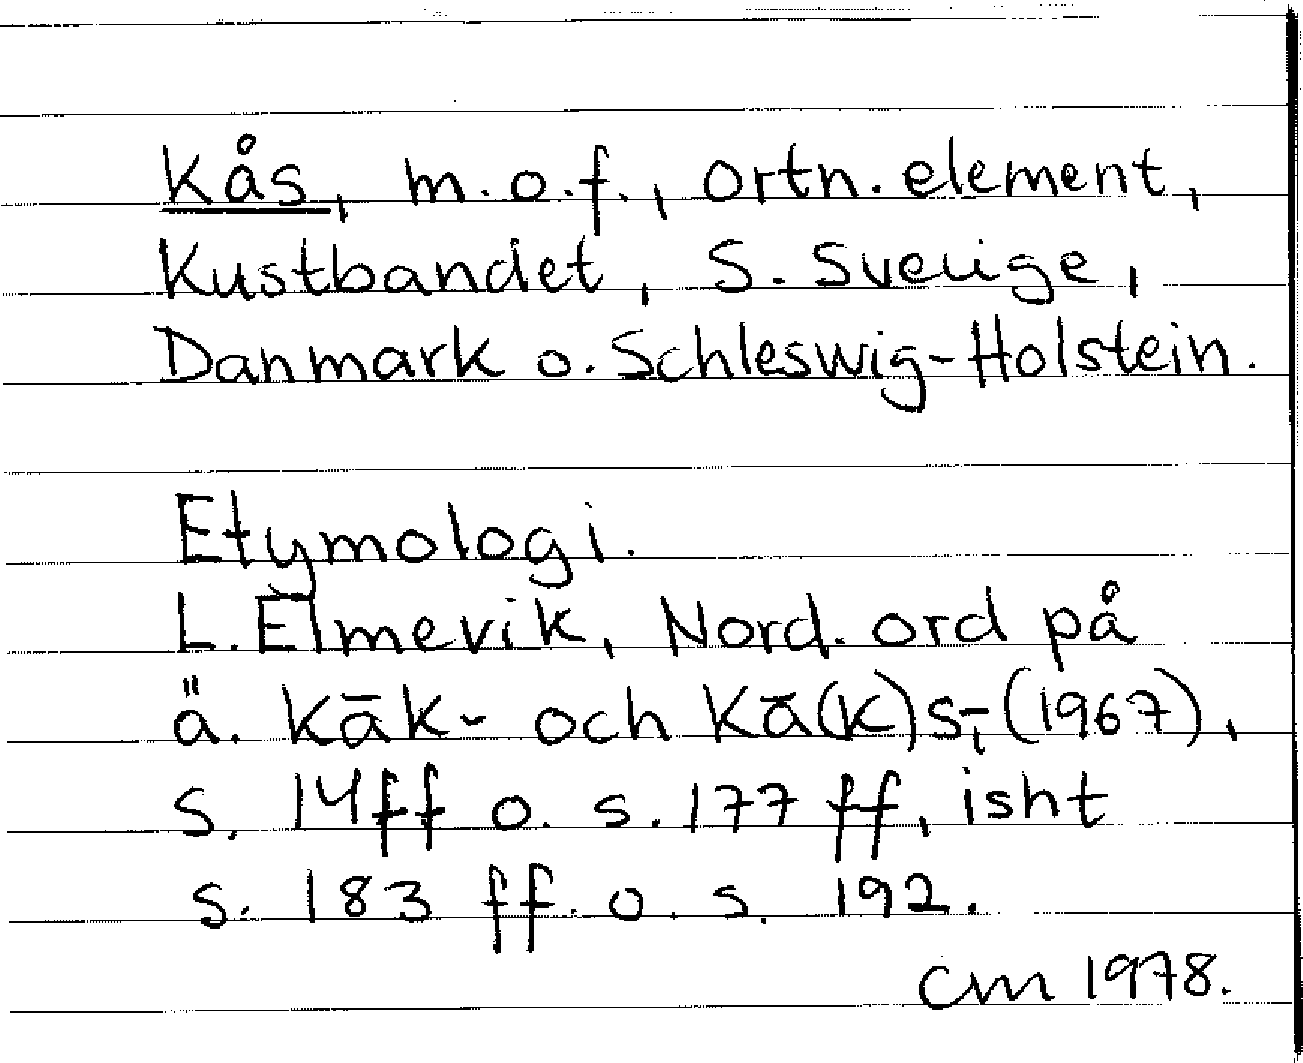 Kås, m.o.f., ortn. element,
Kustbandet, S. Sverige,
Danmark o. Schleswig-Holstein.
Etymologi.
L. Elmevik, Nord. ord på
ä. kāk- och kā(k)s- (1967),
s. 14ff o. s. 177 ff, isht
s. 183 ff. o. s. 192.
CM 1978.